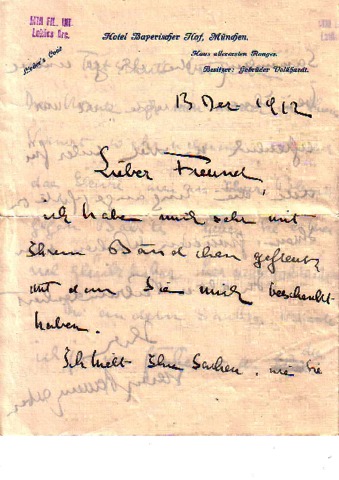 MTA FIL. INT.
Lukács Arc.
Lieber's Code
Hotel Bayerischer Hof, München.
Haus allerersten Ranges.
Besitzer: Gebrüder Volkhardt.
13 Dez 1912
Lieber Freund,
ich habe mich sehr mit
Ihrem Bändchen gefreut,
mit dem Sie mich beschenkt
haben.
Ihre Sachen, wie Sie